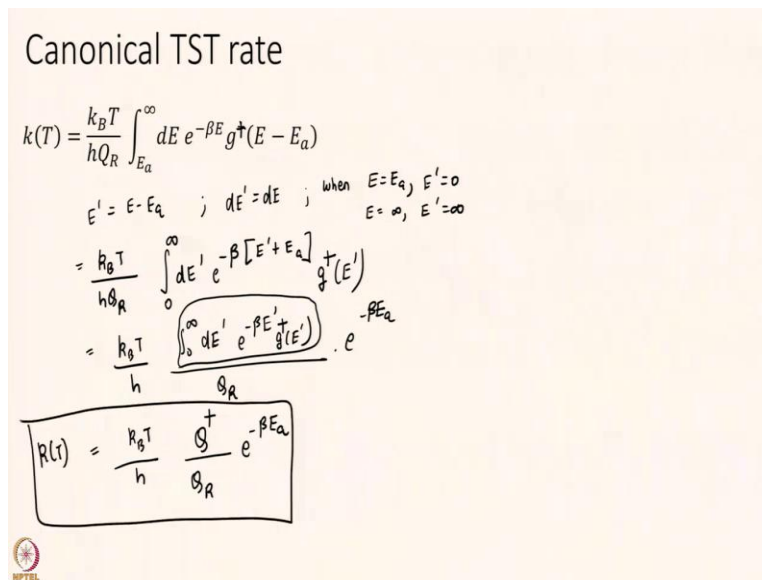 Canonical TST rate
k(T) = \frac{k_B T}{hQ_R} \int_{E_a}^{\infty} dE e^{-βE} g^‡(E − E_a)
E' = E - E_a ; dE' = dE ; when E = E_a, E' = 0
E = ∞, E' = ∞
= \frac{k_B T}{hQ_R} \int_0^{\infty} dE' e^{-β[E' + E_a]} g^‡(E')
= \frac{k_B T}{h} \frac{\int_0^{\infty} dE' e^{-βE'} g^‡(E')}{Q_R} . e^{-βE_a}
k(T) = \frac{k_B T}{h} \frac{Q^‡}{Q_R} e^{-βE_a}
NPTEL